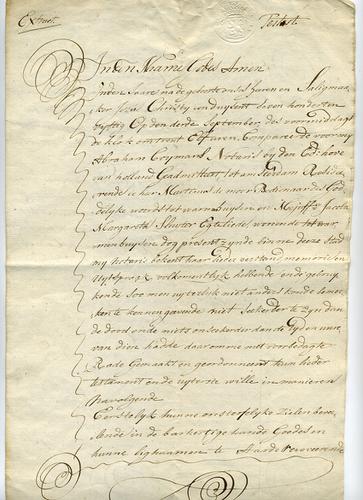 Extract.
Testat.
In den Naame Godes Amen
In den Jaare na de geboorte onses Heeren en Saligmaa
ker Jesu Christy een duysent seven honderten
vyftig Op den derde September, des voormiddags
de klok omtrent Elf uren, Compareerde voor my
Abraham Notaris by den Ed: hove
van holland Geadmitteert tot Amsterdam Reside
rende de heer Martinus de moor Bedienaar des God
delyke woords tot en Mejuffr. Jacoba
Margareta Sluyter Egtelieden, woonende tot
dog present zynde binne deeze stad
my Notaris bekent haar lieder verstand memorie en
uytspraak volkomentlyk hebbende ende gebruy
kende soo men uyterlyk niet anders konde bemer
ken te kennen gevende niet seekerder te zyn dan
de dood ende niets onseekerder dan de tyd en uure
van dien hadde daaromme met voorbedagte
Raade Gemaakt en geordonneert hun lieder
testament ende uyterste wille in manieren
navolgende
Eerstelyk hunne onsterfelyke Zielen beve
lende in de barhertige hande Goodes en
hunne lighaamen te Aarde